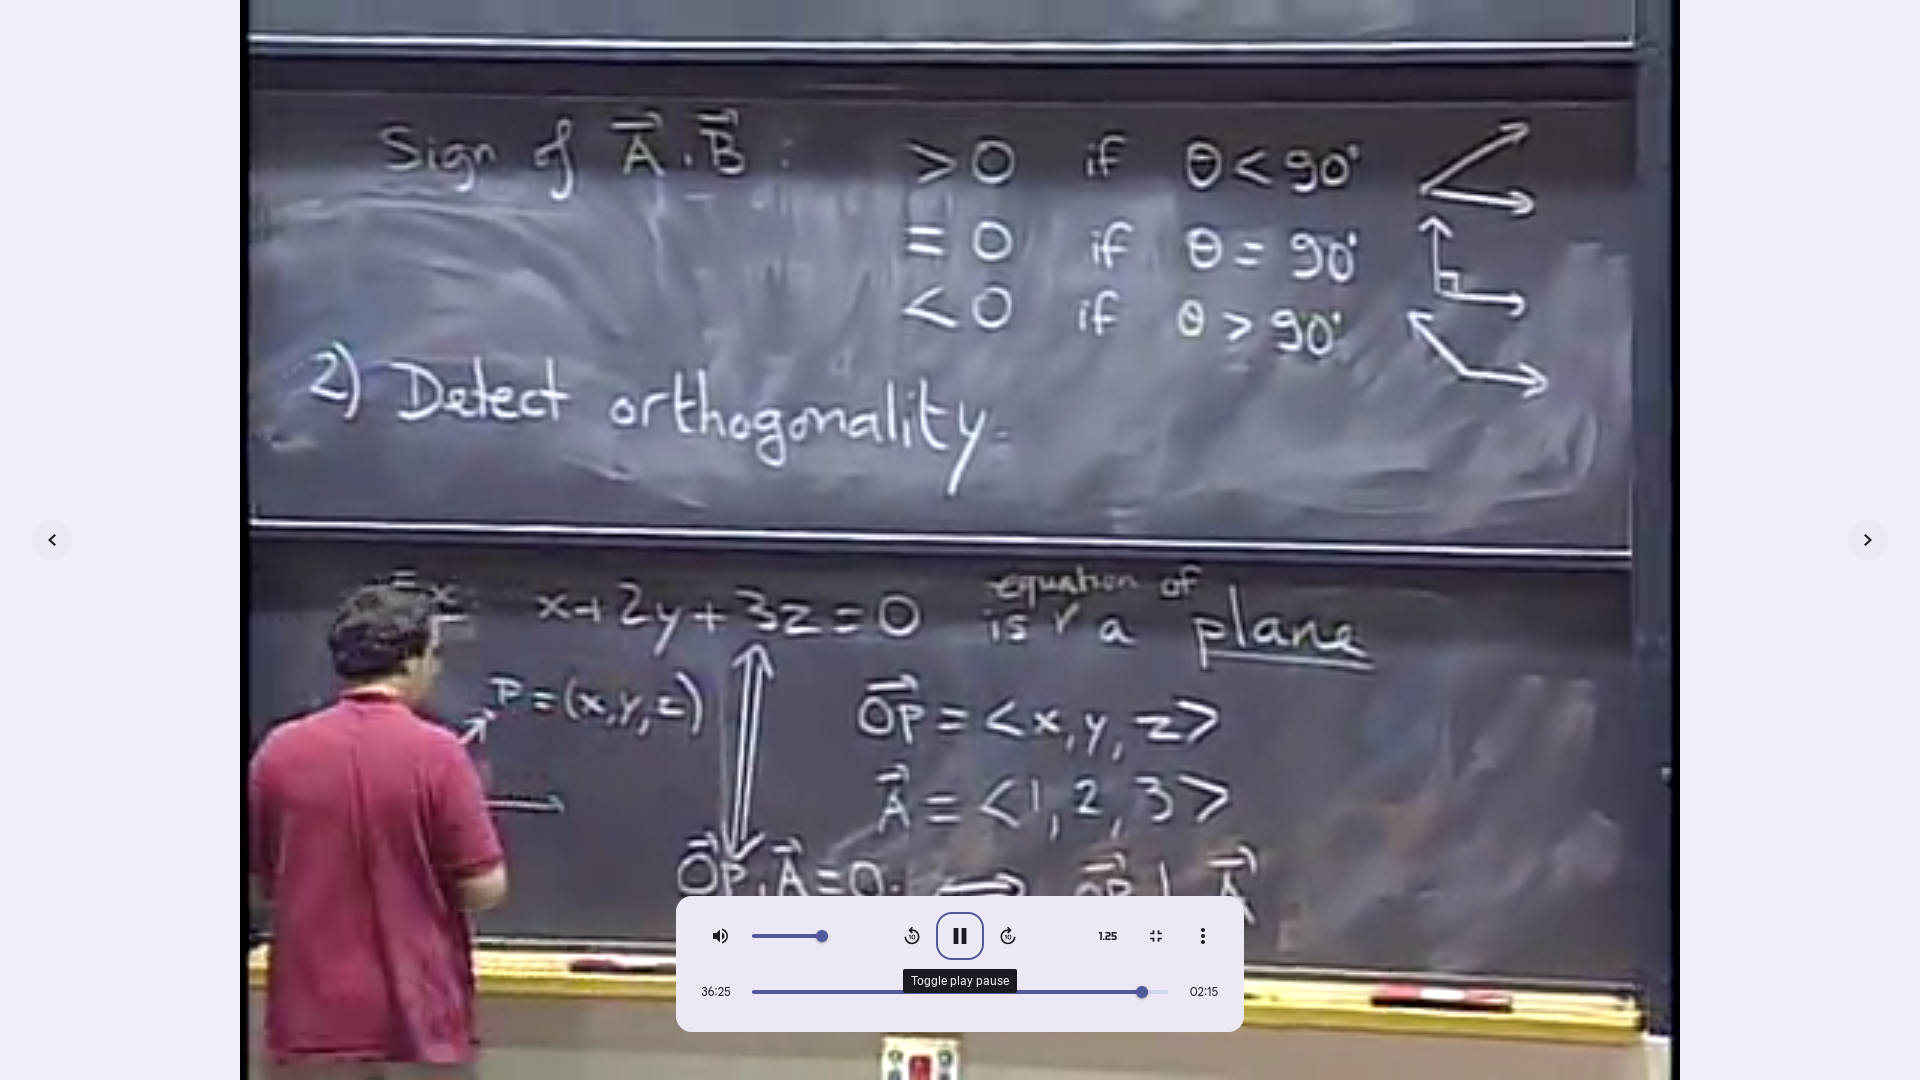 Sign of A⃗ · B⃗ : > 0 if θ < 90°
= 0 if θ = 90°
< 0 if θ > 90°
2) Detect orthogonality.
x + 2y + 3z = 0 is equation of a plane
P = (x, y, z)
O⃗P = <x, y, z>
A⃗ = <1, 2, 3>
O⃗P · A⃗ = 0 ⟺ O⃗P ⊥ A⃗
10 10 1.25
Toggle play pause
36:25 02:15